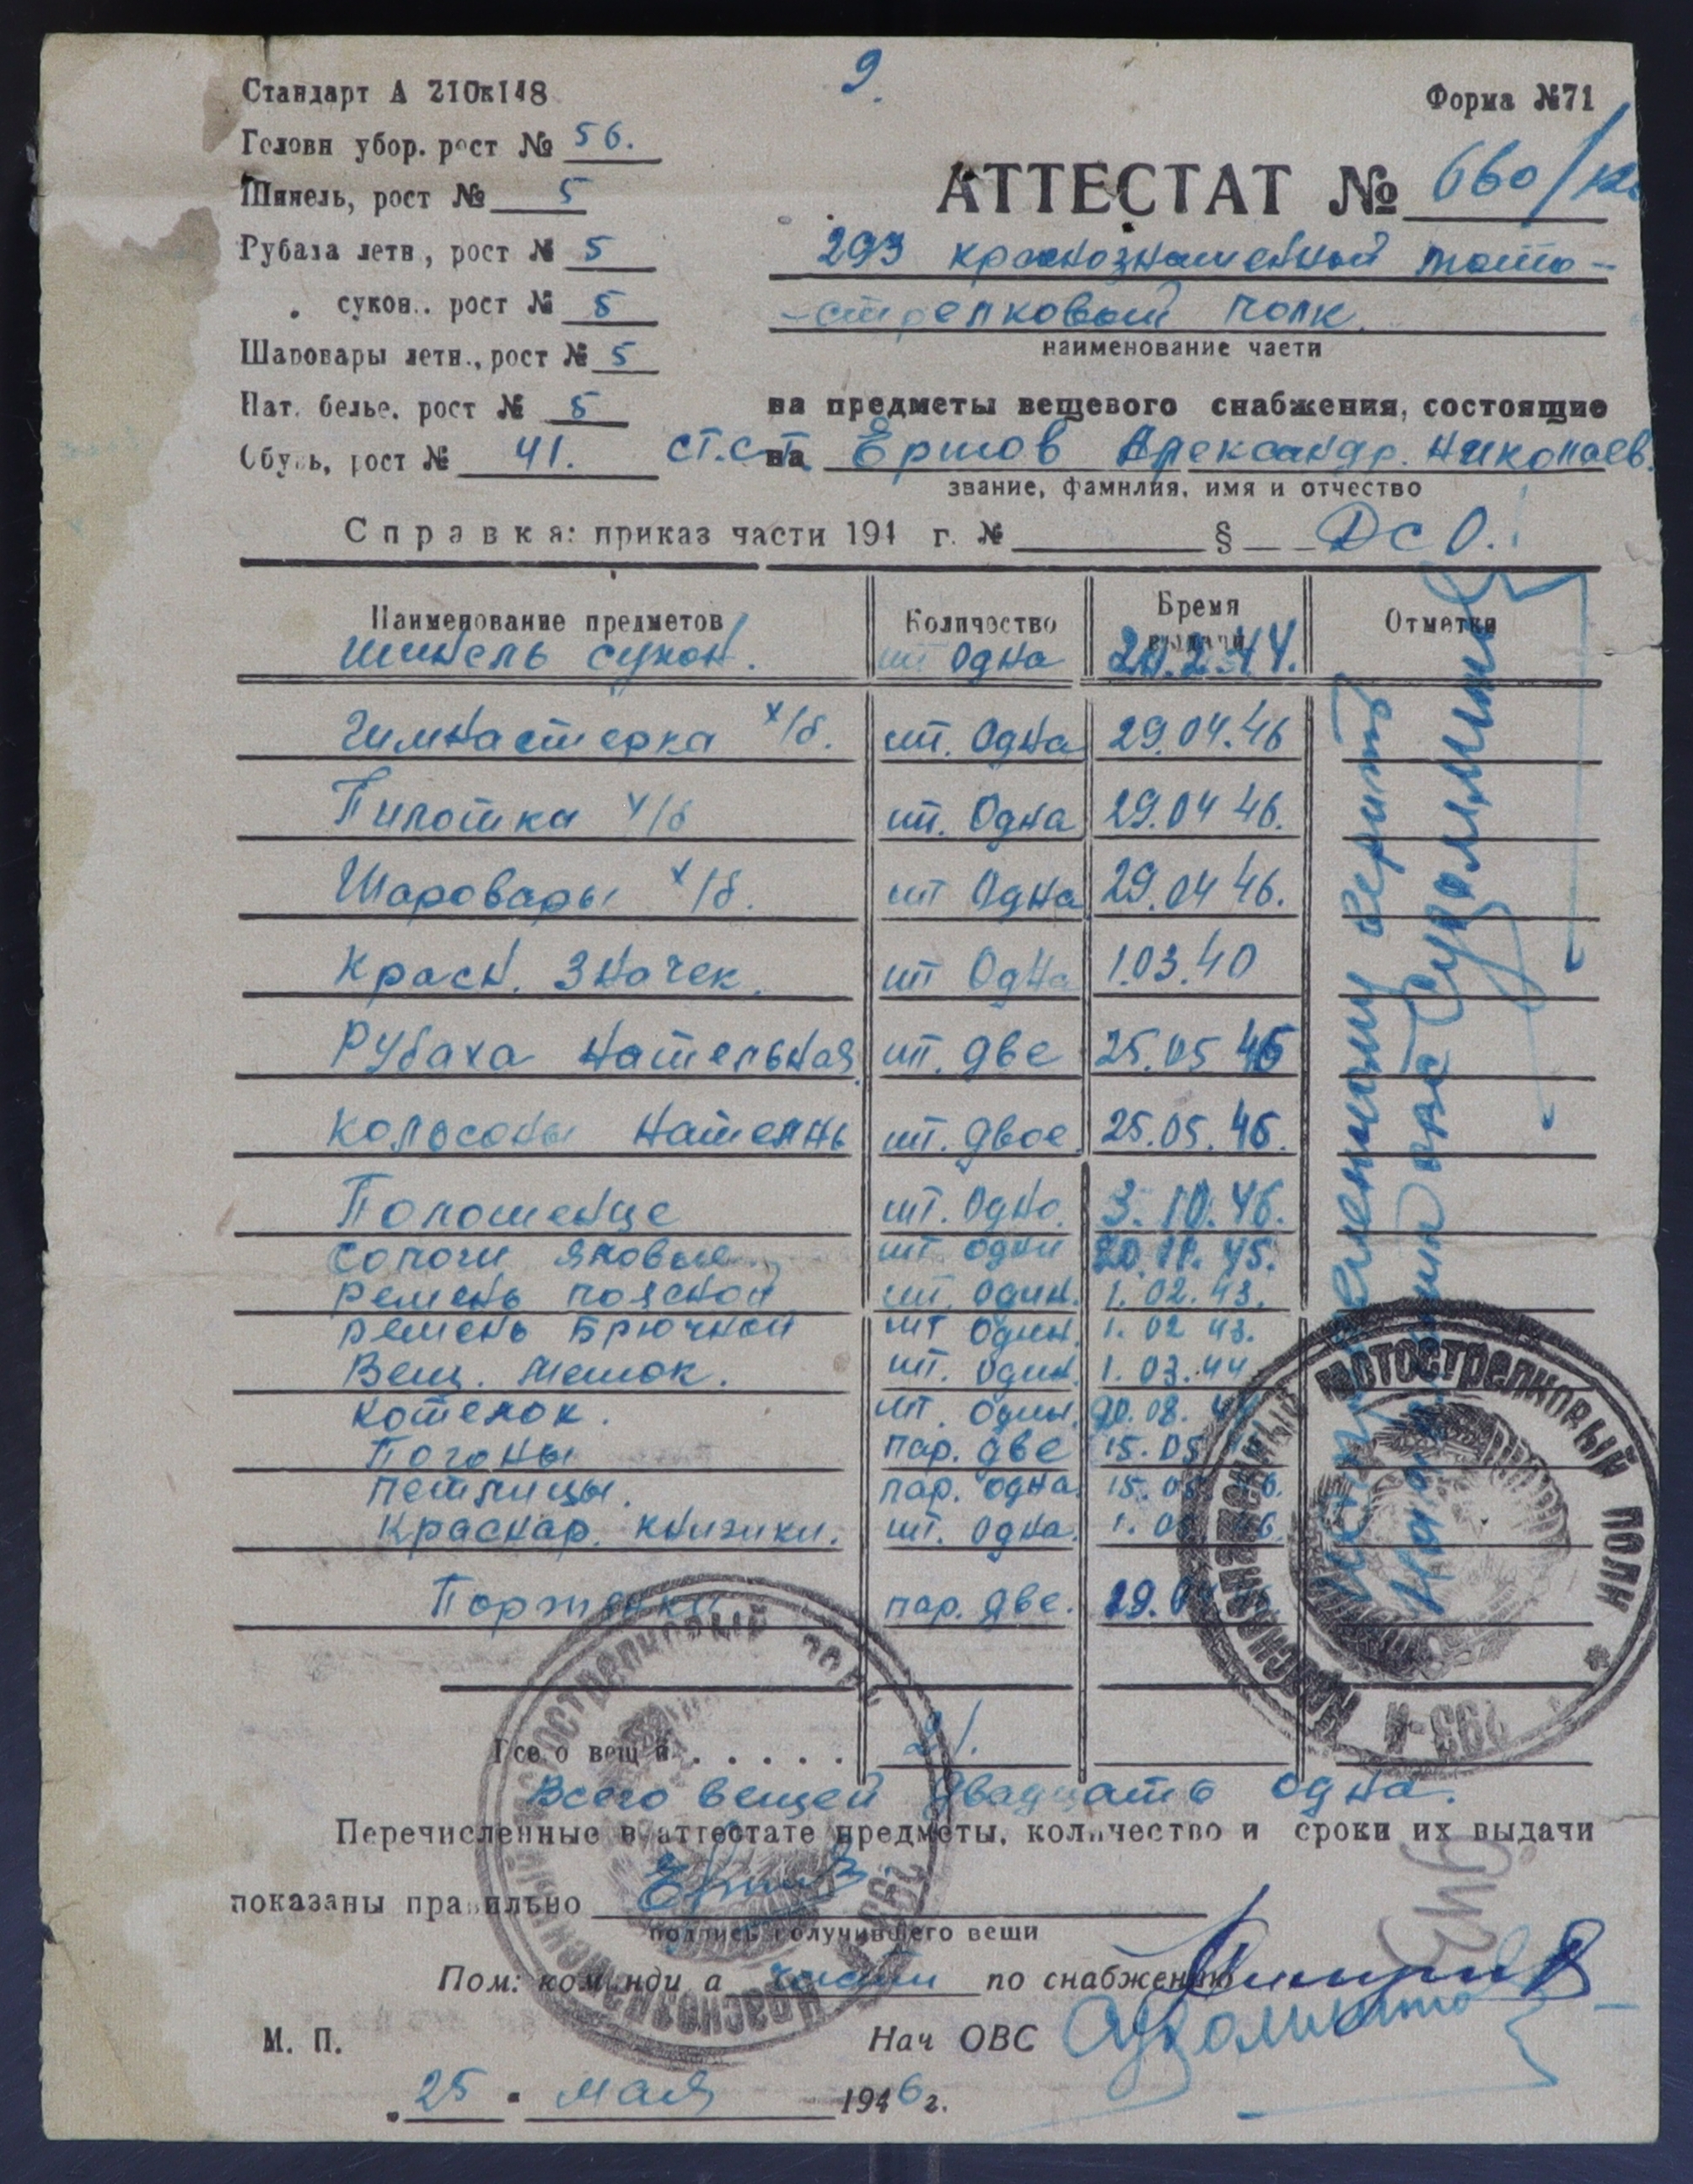 9.
Стандарт А 210х148
Форма №71
Головн убор. рост № 56.
Шинель, рост № 5
АТТЕСТАТ № 660/
Рубаха летн., рост № 5
293 краснознаменный мото-
" сукон.. рост № 5
-стрелковый полк.
Шаровары летн., рост № 5
наименование части
Нат. белье. рост № 5
на предметы вещевого снабжения, состоящие
Обувь, рост № 41.
ст.с-т. на Ершов Александр. Николаев.
звание, фамилия, имя и отчество
Справка: приказ части 194 г. № § ДСО.
Наименование предметов Количество Время выдачи Отметки
Шинель сукон. шт Одна 2.44.
Гимнастерка х/б. шт. Одна 29.04.46
Пилотка х/б шт. Одна 29.04 46.
Шаровары х/б. шт Одна 29.04 46.
Красн. Значек. шт Одна 1.03.40
Рубаха нательная шт. две 25.05 46
Кальсоны нательн шт. двое. 25.05.46.
Полотенце шт. Одно. 3.10.46.
Сапоги яловые шт одни 20.11.45.
Ремень поясной шт. Один. 1.02.43.
Ремень Брючной шт Один. 1.02 43.
Вещ. мешок. шт. Один. 1.03.44
Котелок. шт. Один. 20.08.
Погоны пар. две 15.05
Петлицы. пар. одна. 15. 6.
Краснар. книжки. шт. Одна. 1. 6.
Портянки пар. две. 29.
Всего вещей . . . . . 21.
Всего вещей двадцать одна.
Перечисленные в аттестате предметы, количество и сроки их выдачи
показаны правильно Ершов
подпись получившего вещи
Пом: командира части по снабжению
М. П. Нач ОВС
" 25 " мая 1946 г.
Исправленному верить
Краснознаменный мотострелковый полк * 293-й
Краснознаменный мотострелковый полк